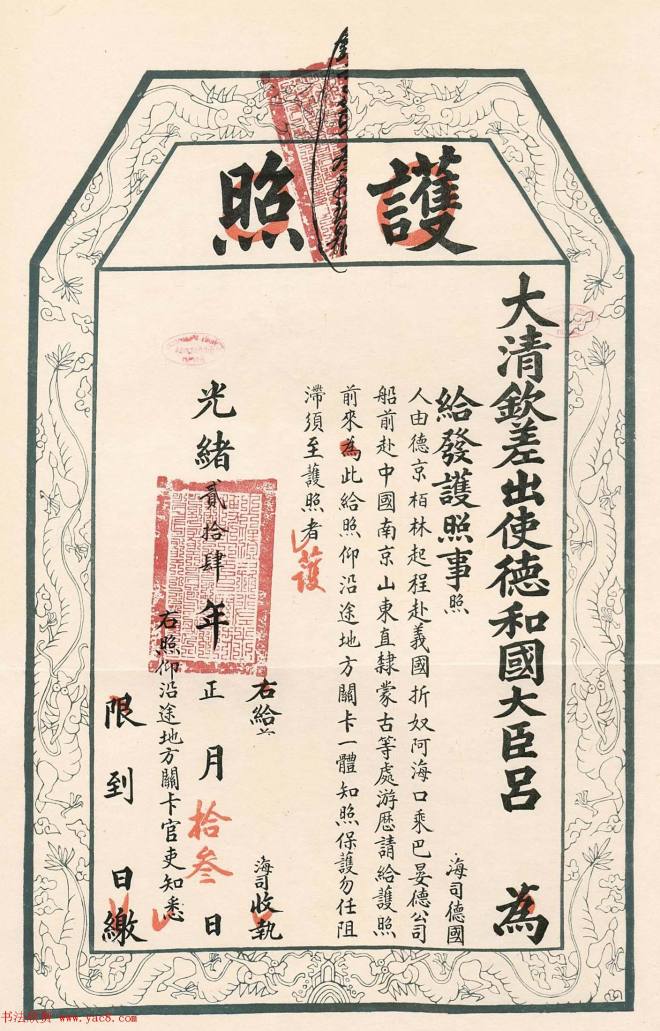 護照
大清欽差出使德和國大臣呂 為
給發護照事照 海司德國
人由德京栢林起程赴義國折奴阿海口乘巴晏德公司
船前赴中國南京山東直隷蒙古等處游歷請給護照
前來為此給照仰沿途地方關卡一體知照保護勿任阻
滯須至護照者
護
右給 海司收執
光緒貳拾肆年正月拾叁日
右照仰沿途地方關卡官吏知悉
限到 日繳
书法欣赏 www.yac8.com